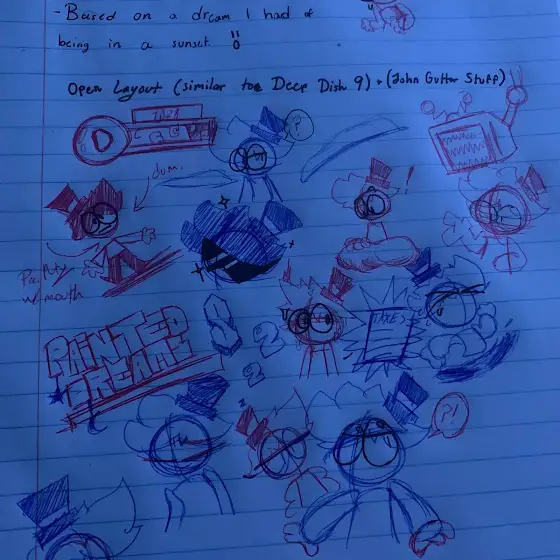 - Based on a dream I had of
being in a sunset. !!
Open Layout (similar toe Deep Dish 9) + (John Gutter Stuff)
D
?
dum.
!
w/ mouth
PAINTED
DREAMS
S
2
2
TAXES
?!